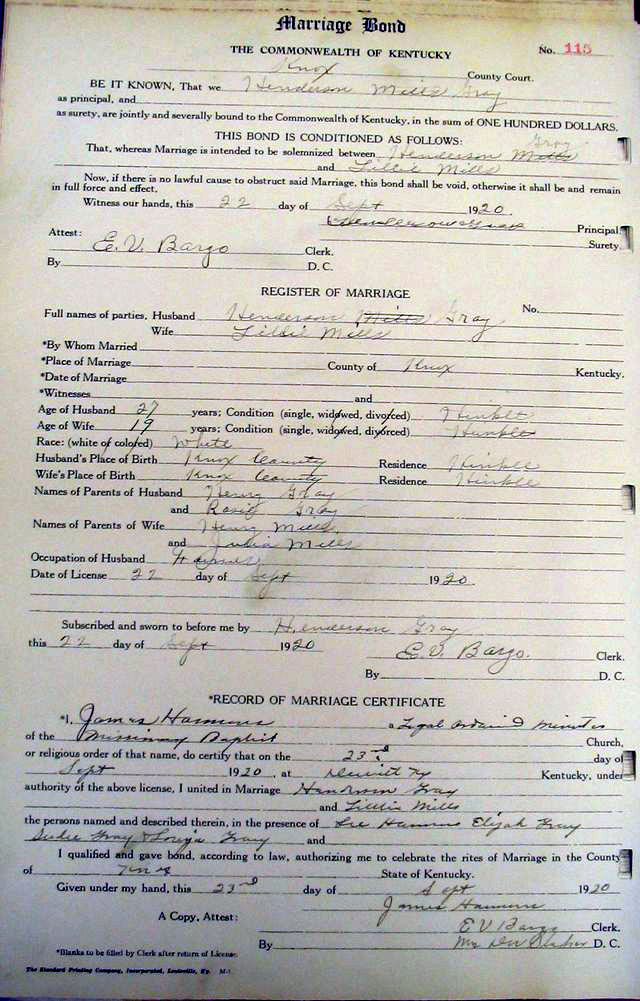 Marriage Bond
THE COMMONWEALTH OF KENTUCKY No. 115
Knox County Court.
BE IT KNOWN, That we Henderson Mills Gray
as principal, and
as surety, are jointly and severally bound to the Commonwealth of Kentucky, in the sum of ONE HUNDRED DOLLARS.
THIS BOND IS CONDITIONED AS FOLLOWS:
Gray
That, whereas Marriage is intended to be solemnized between Henderson Mills
and Lillie Mills
Now, if there is no lawful cause to obstruct said Marriage, this bond shall be void, otherwise it shall be and remain
in full force and effect.
Witness our hands, this 22 day of Sept 1920.
Henderson Gray Principal.
Attest: Surety.
E. V. Bargo Clerk.
By D. C.
REGISTER OF MARRIAGE
Full names of parties, Husband Henderson Mills Gray No.
Wife Lillie Mills
*By Whom Married
*Place of Marriage County of Knox Kentucky.
*Date of Marriage
*Witnesses and
Age of Husband 27 years; Condition (single, widowed, divorced) Hinkle
Age of Wife 19 years; Condition (single, widowed, divorced) Hinkle
Race: (white or colored) White
Husband's Place of Birth Knox County Residence Hinkle
Wife's Place of Birth Knox County Residence Hinkle
Names of Parents of Husband Henry Gray
and Rosie Gray
Names of Parents of Wife Henry Mills
and Julia Mills
Occupation of Husband Farmer
Date of License 22 day of Sept 1920.
Subscribed and sworn to before me by Henderson Gray
this 22 day of Sept 1920
E. V. Bargo. Clerk.
By D. C.
*RECORD OF MARRIAGE CERTIFICATE
*I, James Hammons a Legal ordained minister
of the Missionary Baptist Church,
or religious order of that name, do certify that on the 23rd day of
Sept 1920, at Dewitt Ky Kentucky, under
authority of the above license, I united in Marriage Henderson Gray
and Lillie Mills
the persons named and described therein, in the presence of Hammons Elijah Gray
Gray & Gray and
I qualified and gave bond, according to law, authorizing me to celebrate the rites of Marriage in the County
of Knox State of Kentucky.
Given under my hand, this 23rd day of Sept 1920
James Hammons
A Copy, Attest: E V Bargo Clerk.
By D. C.
*Blanks to be filled by Clerk after return of License.
The Standard Printing Company, Incorporated, Louisville, Ky. M-1